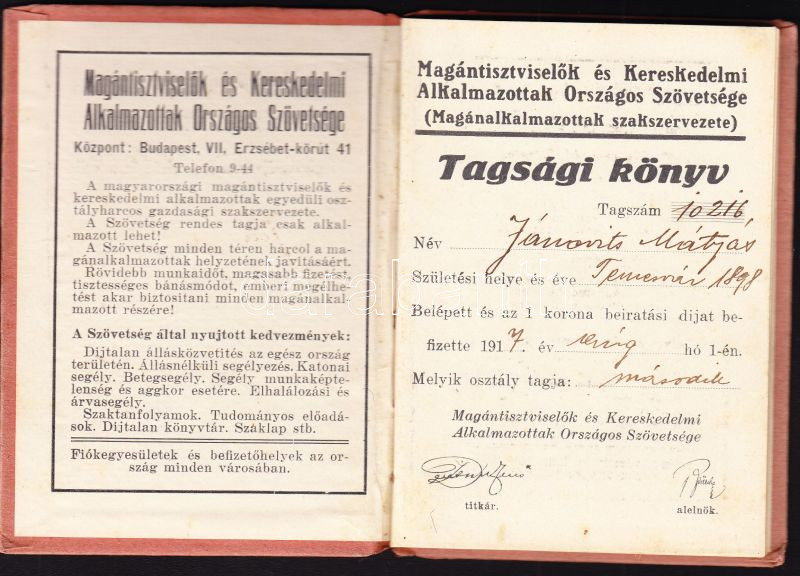 Magántisztviselők és Kereskedelmi
Alkalmazottak Országos Szövetsége
Központ: Budapest, VII, Erzsébet-körút 41
Telefon 9-44
A magyarországi magántisztviselők és
kereskedelmi alkalmazottak egyedüli osz-
tályharcos gazdasági szakszervezete.
A Szövetség rendes tagja csak alkal-
mazott lehet!
A Szövetség minden téren harcol a ma-
gánalkalmazottak helyzetének javitásáért.
Rövidebb munkaidőt, magasabb fizetést,
tisztességes bánásmódot, emberi megélhe-
tést akar biztositani minden magánalkal-
mazott részére!
A Szövetség által nyujtott kedvezmények:
Dijtalan állásközvetités az egész ország
területén. Állásnélküli segélyezés. Katonai
segély. Betegsegély. Segély munkaképte-
lenség és aggkor esetére. Elhalálozási és
árvasegély.
Szaktanfolyamok. Tudományos előadá-
sok. Dijtalan könyvtár. Száklap stb.
Fiókegyesületek és befizetőhelyek az or-
szág minden városában.
Magántisztviselők és Kereskedelmi
Alkalmazottak Országos Szövetsége
(Magánalkalmazottak szakszervezete)
Tagsági könyv
Tagszám 10216
Név Jánovits Mátyás
Születési helye és éve Temesvár 1898
Belépett és az 1 korona beiratási dijat be-
fizette 1917 év hó 1-én.
Melyik osztály tagja: második
Magántisztviselők és Kereskedelmi
Alkalmazottak Országos Szövetsége
titkár.
alelnök.